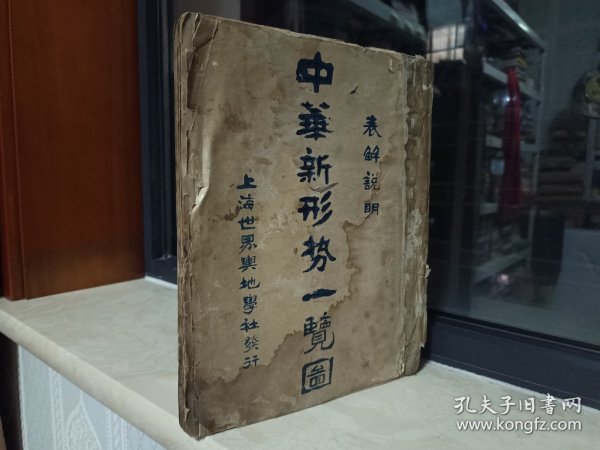 表解說明
中華新形势一覽圖
上海世界輿地學社發行
孔夫子旧书网
www.kongfz.com